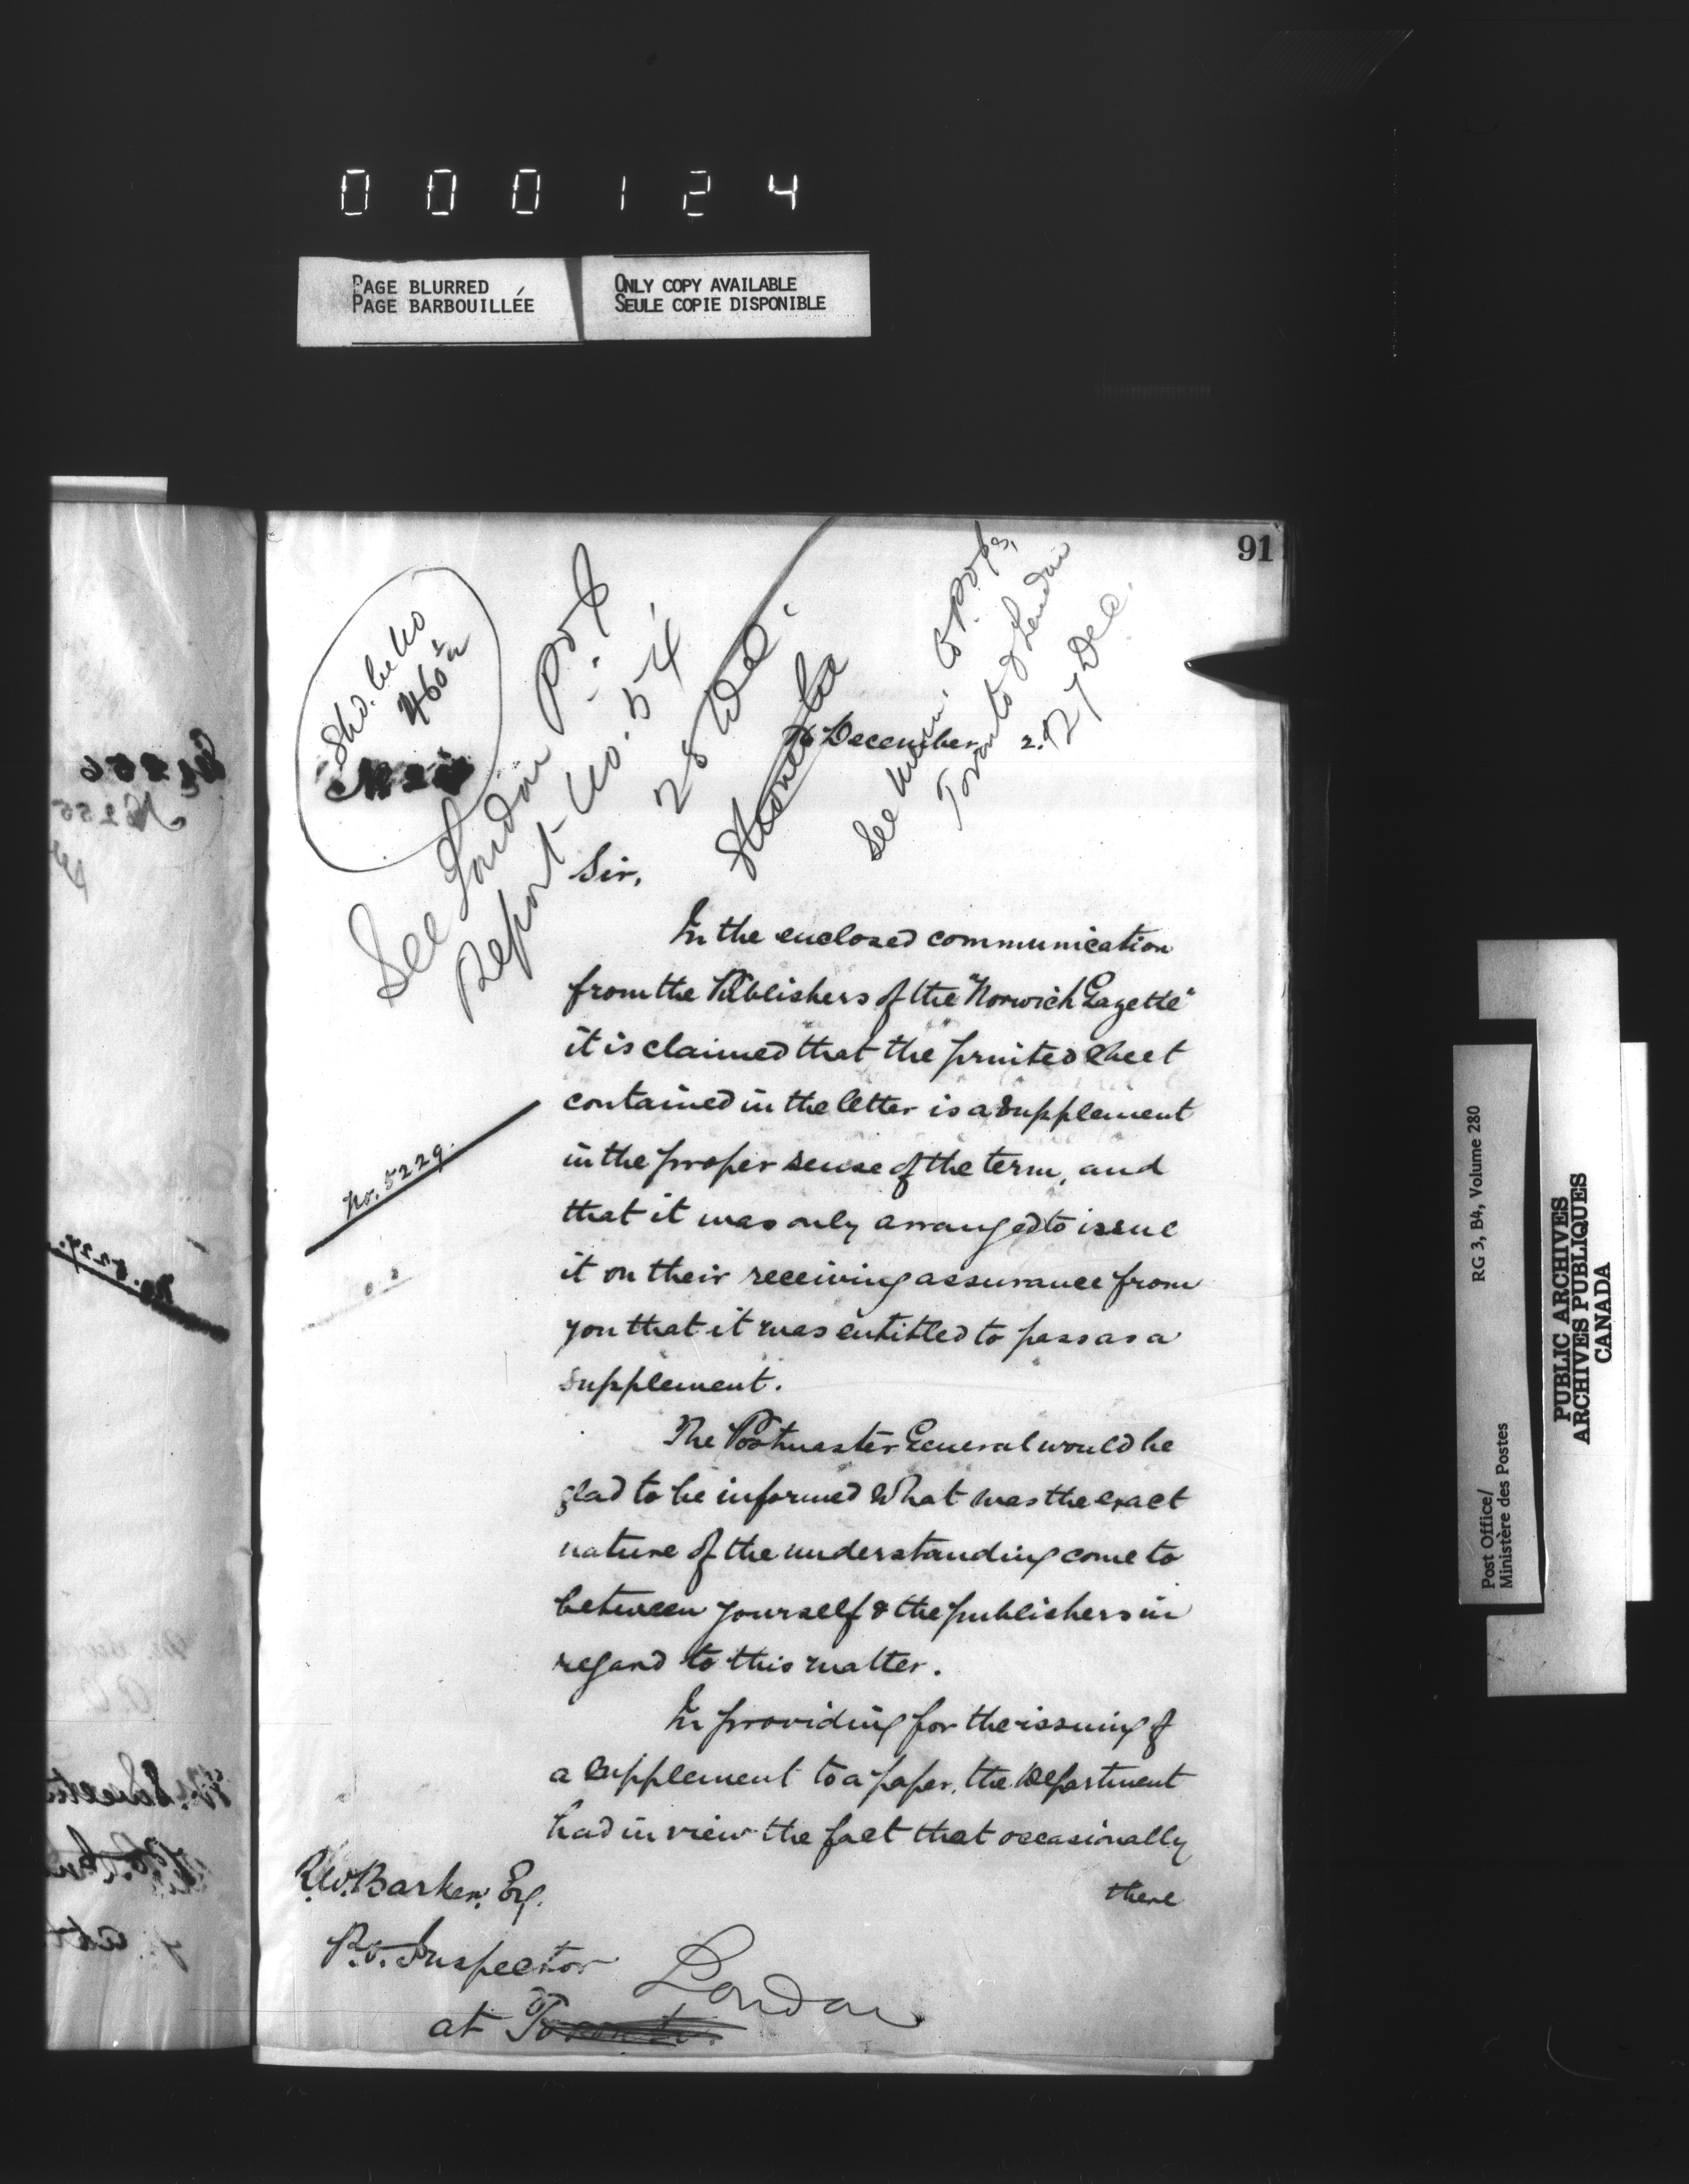 0 0 0 1 2 4
PAGE BLURRED
PAGE BARBOUILLÉE
ONLY COPY AVAILABLE
SEULE COPIE DISPONIBLE
91
Shd. be No
460
See London P.O.
Report No. 54
28 Dec.
See Mem. to P.O.
Toronto & London
27 Dec.
December 2.
Sir,
In the enclosed communication
from the Publishers of the "Norwich Gazette"
it is claimed that the printed sheet
contained in the letter is a Supplement
in the proper sense of the term, and
that it was only arranged to issue
it on their receiving assurance from
you that it was entitled to pass as a
supplement.
No. 5229.
The Postmaster General would be
glad to be informed what was the exact
nature of the understanding come to
between yourself & the publishers in
regard to this matter.
In providing for the issuing of
a supplement to a paper, the Department
had in view the fact that occasionally
there
R.W. Barker, Esq.
P.O. Inspector
at Toronto. London
RG 3, B4, Volume 280
Post Office/
Ministère des Postes
PUBLIC ARCHIVES
ARCHIVES PUBLIQUES
CANADA